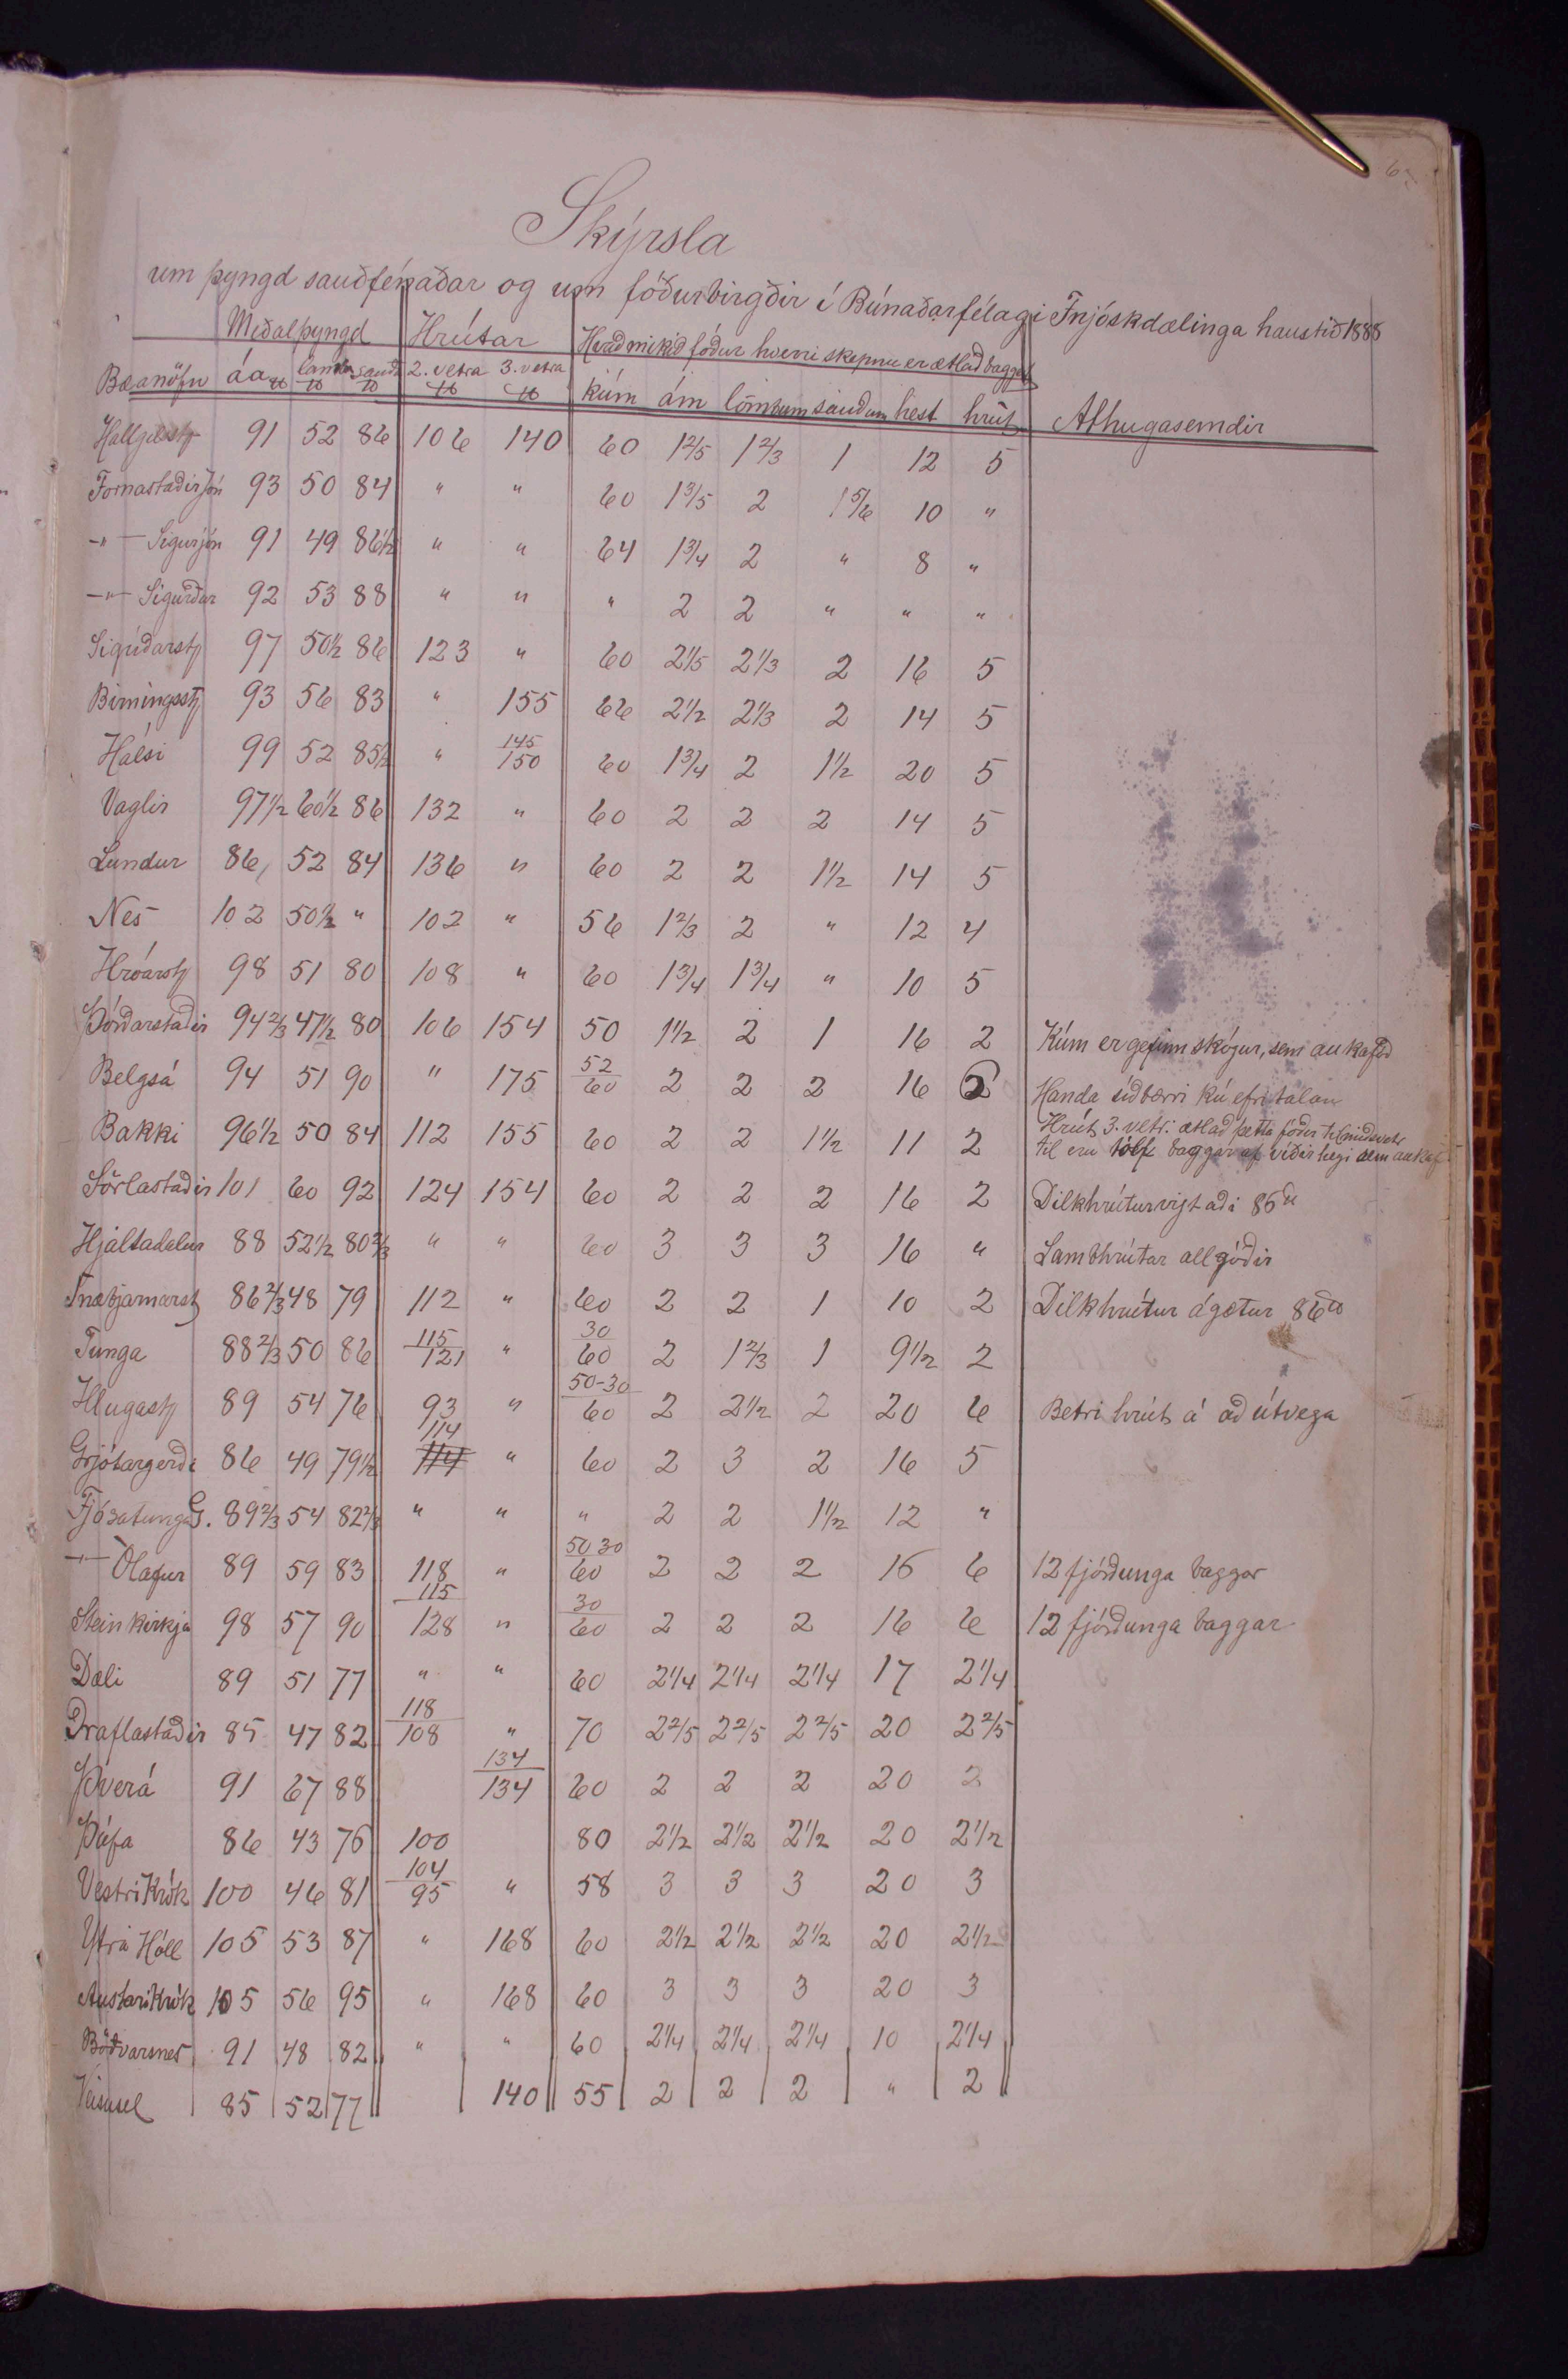 Skýrsla
um þyngd sauðfénaðar og um fóðurbirgðir í Búnaðarfélagi Fnjóskdælinga haustið 1888
Meðalþyngd Hrútar Hvað mikið fóður hverri skepnu er ætlað baggar
Bæanöfn áa lamba sauða 2. vetra 3. vetra kúm ám lömbum sauðum hest hrút Athugasemdir
Hallgilsst 91 52 86 106 140 60 1 2/5 1 2/3 1 12 5
Fornastaðir Jón 93 50 84 " " 60 1 3/5 2 1 5/6 10 "
-"- Sigurjón 91 49 86 1/2 " " 64 1 3/4 2 " 8 "
-"- Sigurður 92 53 88 " " " 2 2 " " "
Sigríðarst 97 50 1/2 86 123 " 60 2 1/5 2 1/3 2 16 5
Birningsst 93 56 83 " 155 66 2 1/2 2 1/3 2 14 5
Hálsi 99 52 85 1/2 " 145/150 60 1 3/4 2 1 1/2 20 5
Vaglir 97 1/2 60 1/2 86 132 " 60 2 2 2 14 5
Lundur 86 52 84 136 " 60 2 2 1 1/2 14 5
Nes 102 50 1/2 " 102 " 56 1 2/3 2 " 12 4
Hróarst 98 51 80 108 " 60 1 3/4 1 3/4 " 10 5
Þórðarstaðir 94 2/3 47 1/2 80 106 154 50 1 1/2 2 1 16 2 Kúm er gefinn skógur, sem aukafóð
Belgsá 94 51 90 " 175 52/60 2 2 2 16 2 Handa síðbærri kú efri talan
Bakki 96 1/2 50 84 112 155 60 2 2 1 1/2 11 2 Hrút 3. vetr: ætlað þetta fóður til miðsvetr
til eru tólf baggar af víðir hegi sem aukaf
Sörlastaðir 101 60 92 124 154 60 2 2 2 16 2 Dilkhrútur vigtaði 86
Hjaltadalur 88 52 1/2 80 2/3 " " 60 3 3 3 16 " Lambhrútar allgóðir
Snæbjarnarst 86 2/3 48 79 112 " 60 2 2 1 10 2 Dilkhrútur ágætur 86
Tunga 88 2/3 50 86 115/121 " 30/60 2 1 2/3 1 9 1/2 2
Illugast 89 54 76 93 " 50-30/60 2 2 1/2 2 20 6 Betri hrút á að útvega
Grjótargerði 86 49 79 1/2 114 114 " 60 2 3 2 16 5
Fjósatunga G. 89 2/3 54 82 2/3 " " " 2 2 1 1/2 12 "
-"- Ólafur 89 59 83 118 " 50 30/60 2 2 2 16 6 12 fjórðunga baggar
Steinkirkja 98 57 90 115/128 " 30/60 2 2 2 16 6 12 fjórðunga baggar
Dæli 89 51 77 " " 60 2 1/4 2 1/4 2 1/4 17 2 1/4
Draflastaðir 85 47 82 118/108 " 70 2 2/5 2 2/5 2 2/5 20 2 2/5
Þverá 91 67 88 134/134 60 2 2 2 20 2
Þúfa 86 43 76 100 80 2 1/2 2 1/2 2 1/2 20 2 1/2
Vestri Krók 100 46 81 104/95 " 58 3 3 3 20 3
Ytri Hóll 105 53 87 " 168 60 2 1/2 2 1/2 2 1/2 20 2 1/2
Austari Krók 105 56 95 " 168 60 3 3 3 20 3
Böðvarsnes 91 48 82 " " 60 2 1/4 2 1/4 2 1/4 10 2 1/4
Veisusel 85 52 77 140 55 2 2 2 " 2